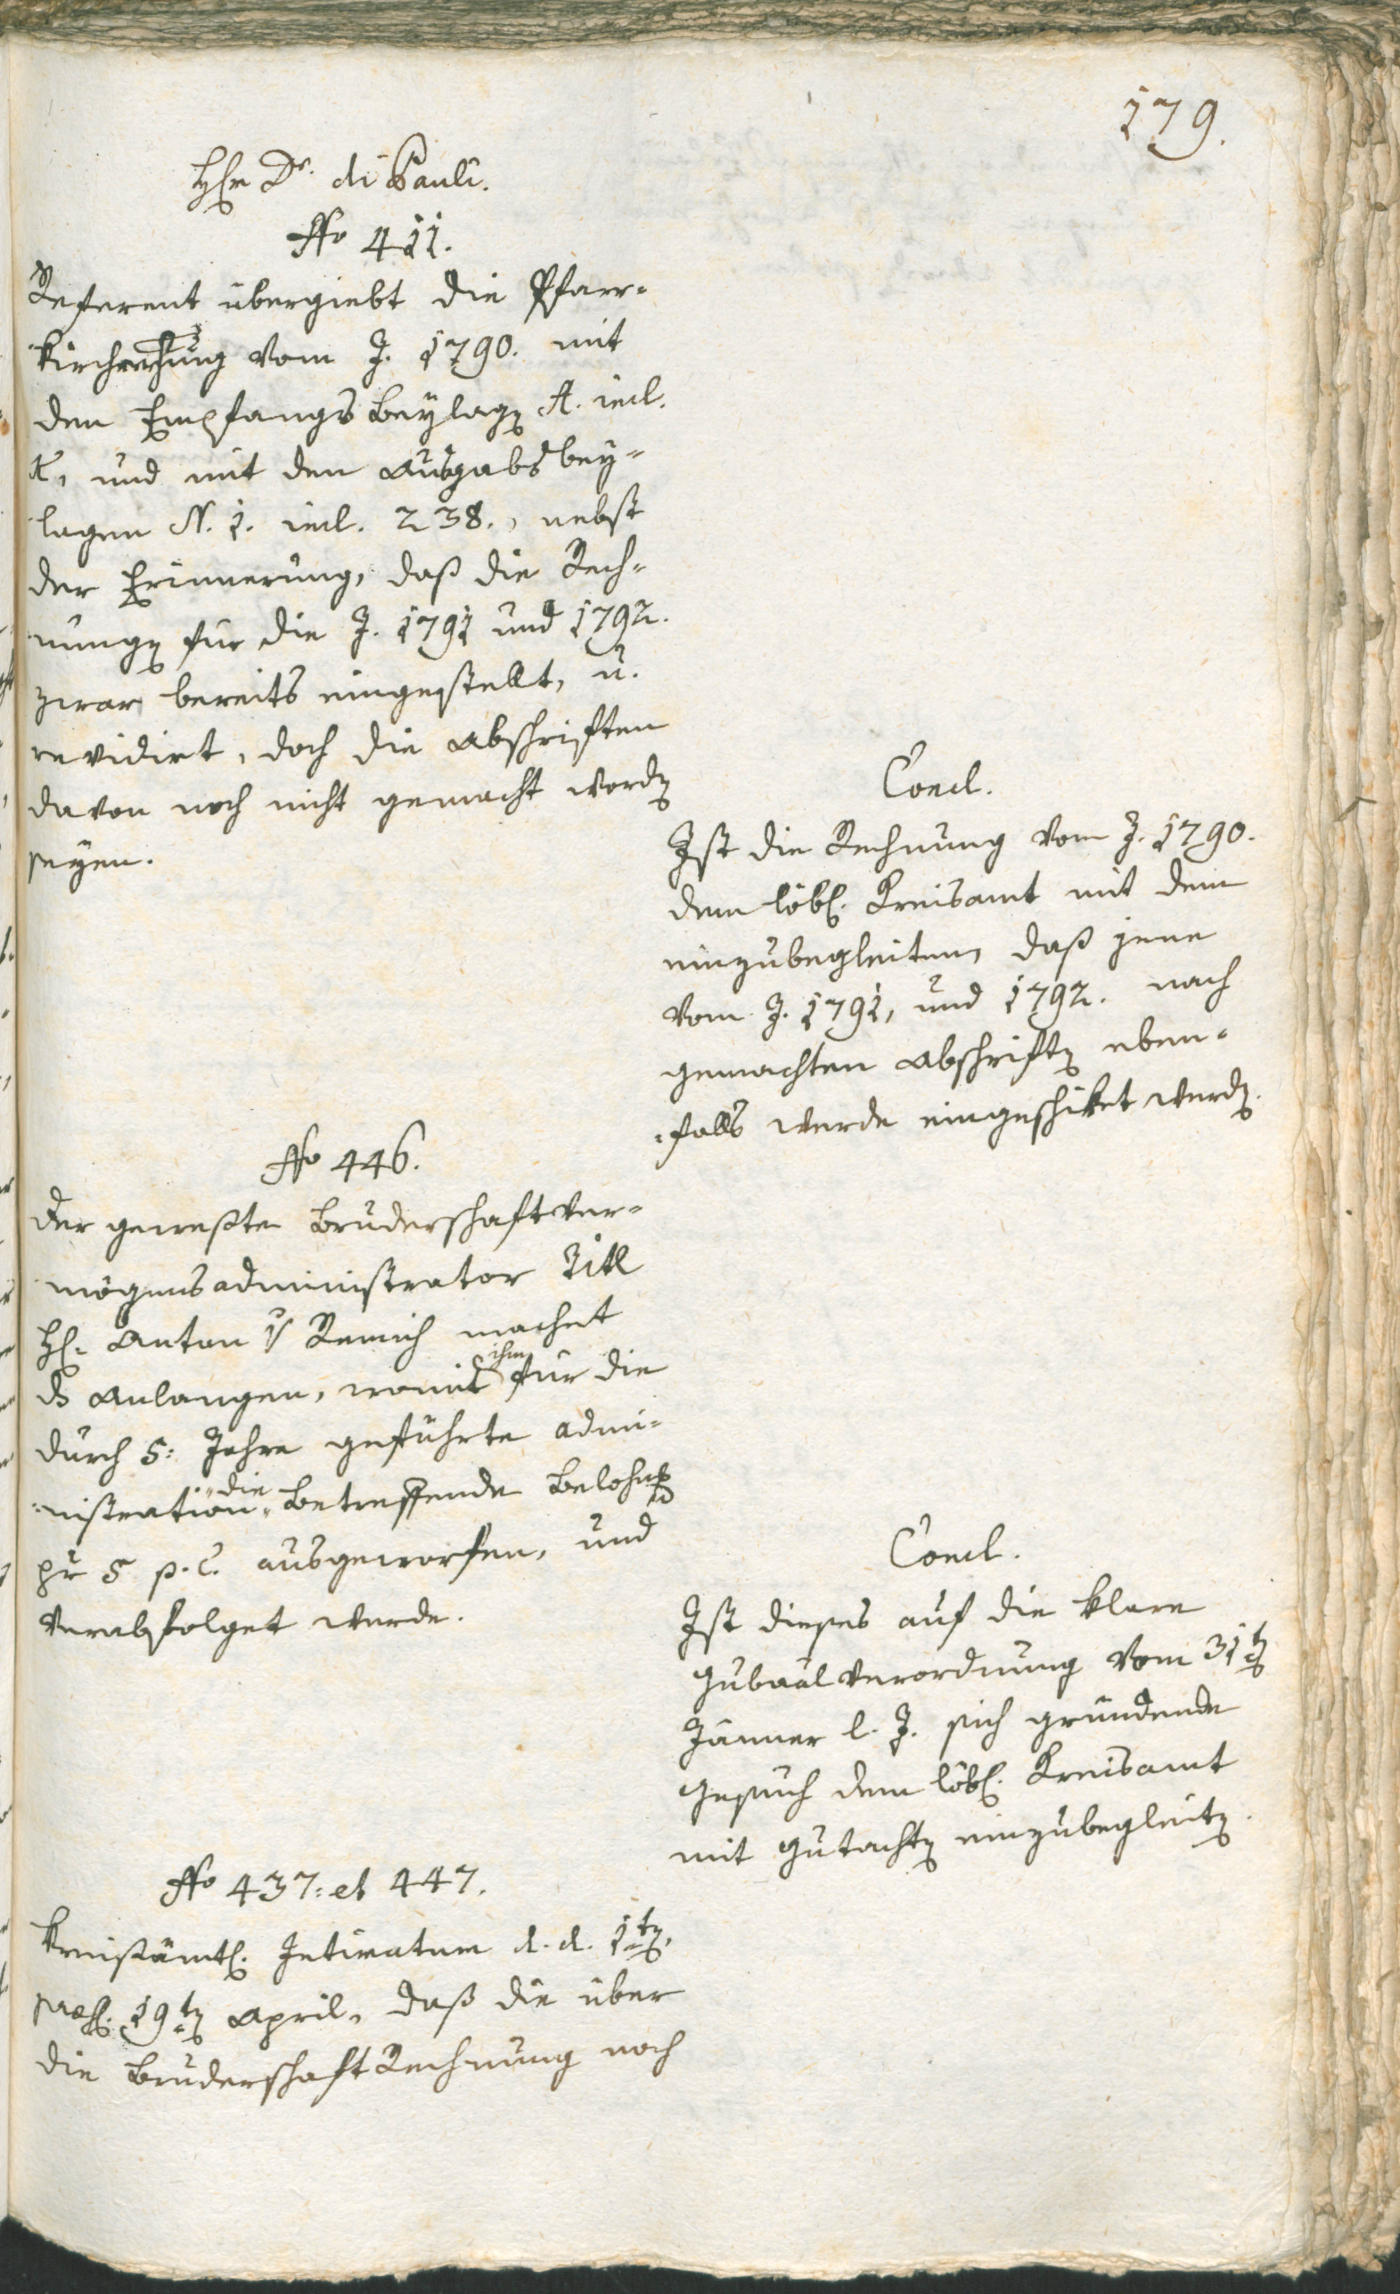 179.
Hr Dr. di Pauli.
No 411.
Referent übergiebt die Pfarr-
kirchrechnung vom J. 1790. mit
den Empfangsbeylagen A. incl.
und mit den Ausgabsbey-
lagen N. 1. incl. 238., nebst
der Erinnerung, daß die Rech-
nungen für die J. 1791 und 1792.
zwar bereits eingestellt, u.
revidirt, doch die Abschriften
davon noch nicht gemacht worden
seyen.
Concl.
Ist die Rechnung vom J. 1790.
dem löbl. Kreisamt mit dem
einzubegleiten, daß jene
vom J. 1791, und 1792. nach
gemachten Abschriften eben-
falls werde eingeschiket werden.
No 446.
Der geweßte Bruderschaftver-
mögensadministrator Titl
H. Anton v Remich machet
ds Anlangen, womit ihm für die
durch 5: Jahre geführte Admi-
nistration die betreffende Belohng
pr 5 p. C. ausgeworfen, und
verabfolget werde.
Concl.
Ist dieses auf die klare
Gubaalverordnung vom 31ten
Jänner l. J. sich gründende
Gesuch dem löbl. Kreisamt
mit Gutachten einzubegleiten.
No 437: et 447.
Kreisämtl. Intimatum d. d. 1ten,
praes. 19ten April, daß die über
die Bruderschaft Rechnung noch